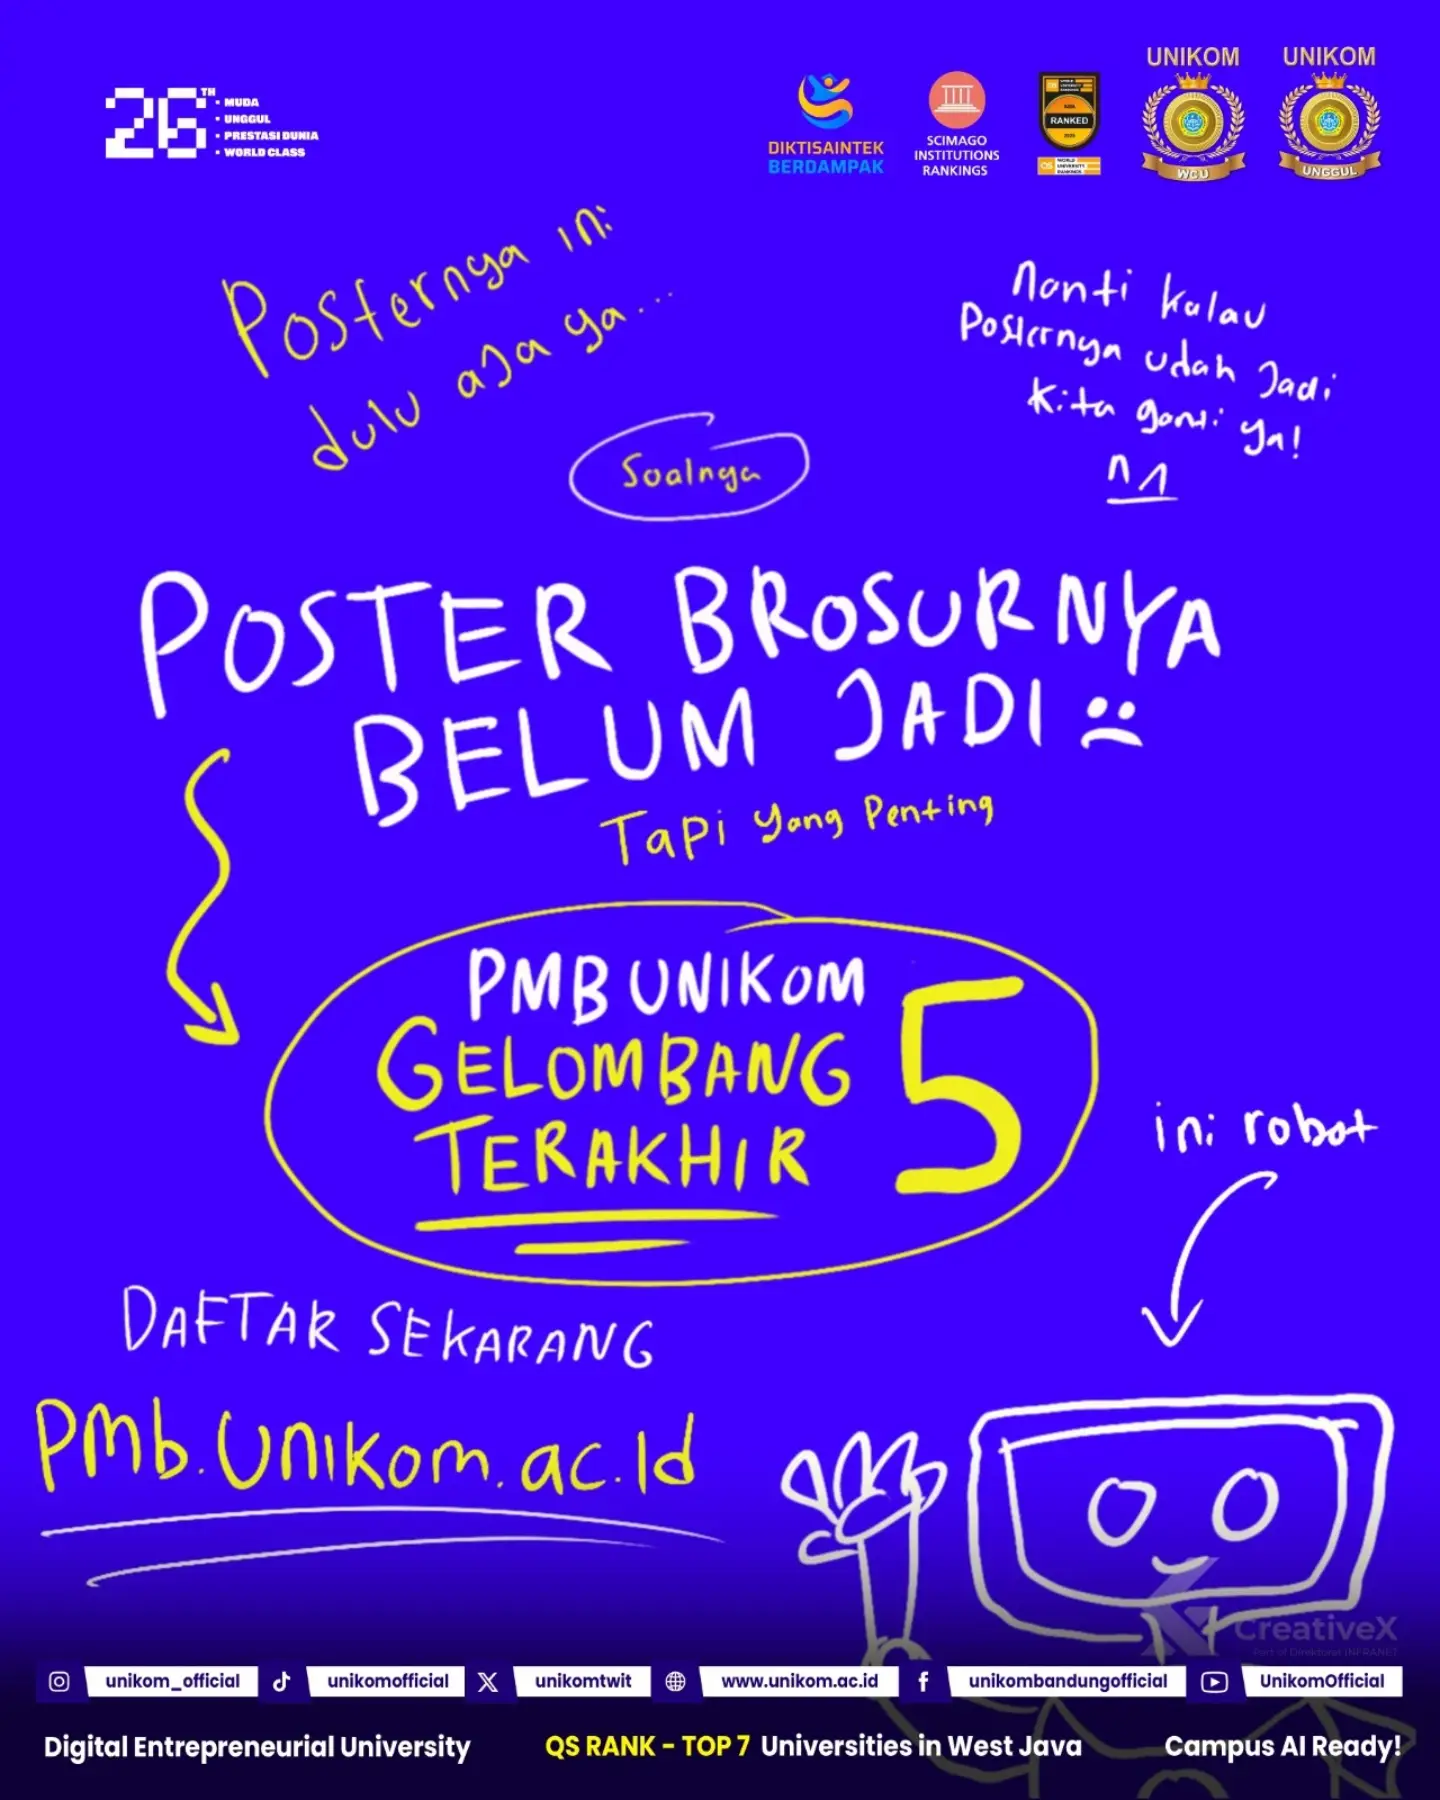 26TH
• MUDA
• UNGGUL
• PRESTASI DUNIA
• WORLD CLASS
DIKTISAINTEK
BERDAMPAK
SCIMAGO
INSTITUTIONS
RANKINGS
RANKED
WORLD
UNIVERSITY
RANKINGS
UNIKOM
WCU
UNIKOM
UNGGUL
Posternya ini
dulu aja ya...
nanti kalau
Posternya udah Jadi
kita ganti ya!
Soalnya
POSTER BROSURNYA
BELUM JADI
Tapi yang Penting
PMB UNIKOM
GELOMBANG 5
TERAKHIR
ini robot
DAFTAR SEKARANG
Pmb.Unikom.ac.Id
CreativeX
Part of Direktorat INFRANET
unikom_official
unikomofficial
unikomtwit
www.unikom.ac.id
unikombandungofficial
UnikomOfficial
Digital Entrepreneurial University
QS RANK - TOP 7 Universities in West Java
Campus AI Ready!